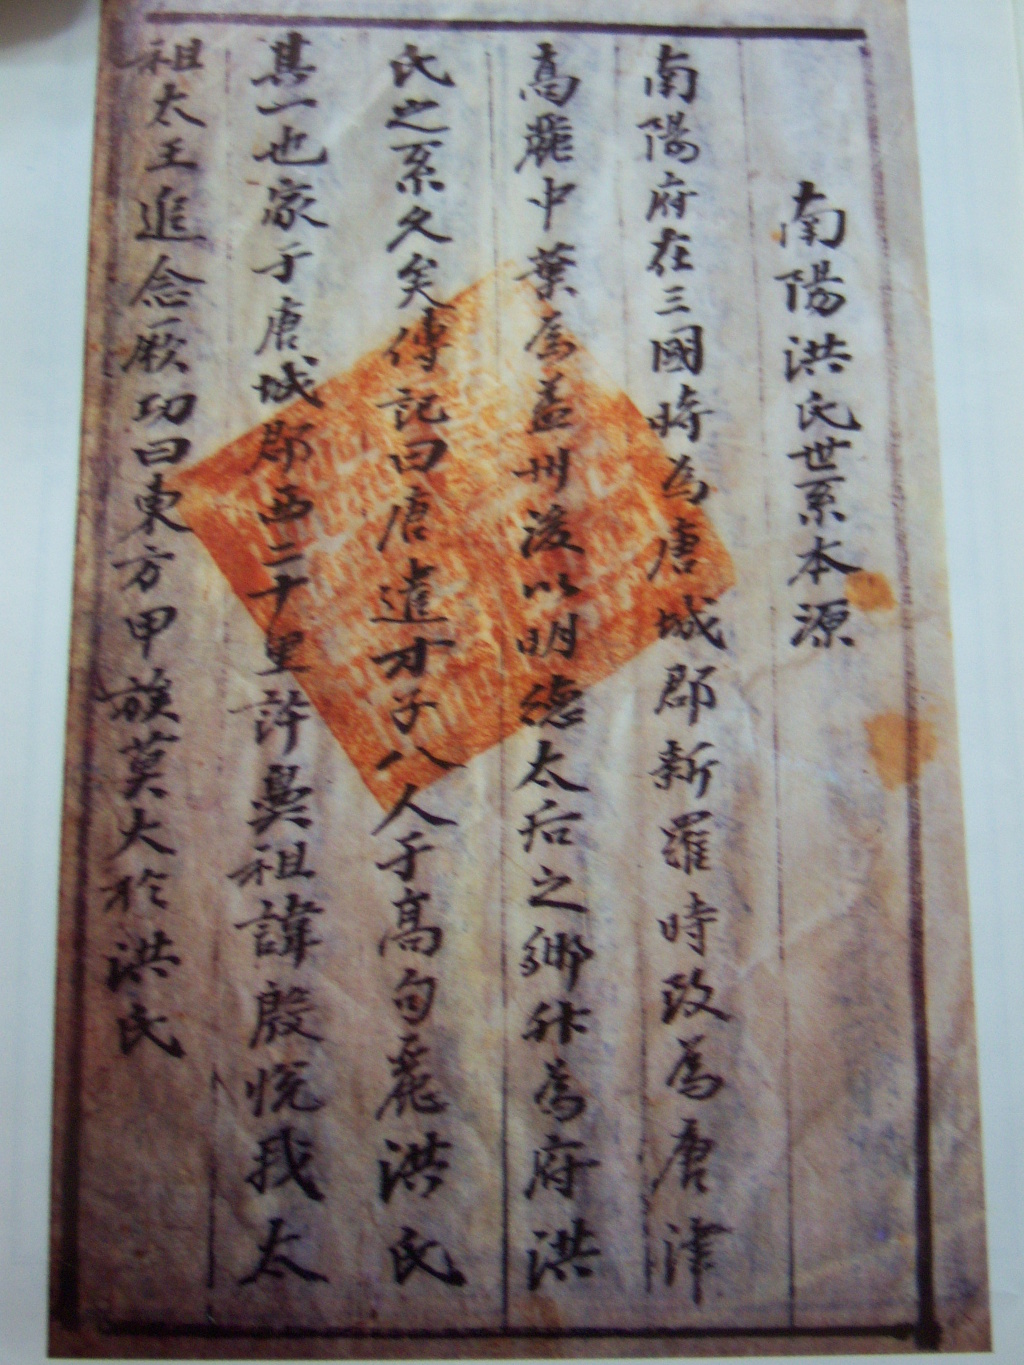 南陽洪氏世系本源
南陽府在三國時為唐城郡新羅時改為唐津
高麗中葉為益州後以明德太后之鄉陞為府洪
氏之系久矣傳記曰唐遣才子八人于高句麗洪氏
其一也家于唐城郡西二十里許鼻祖諱殷悅我太
祖太王追念厥功曰東方甲族莫大於洪氏